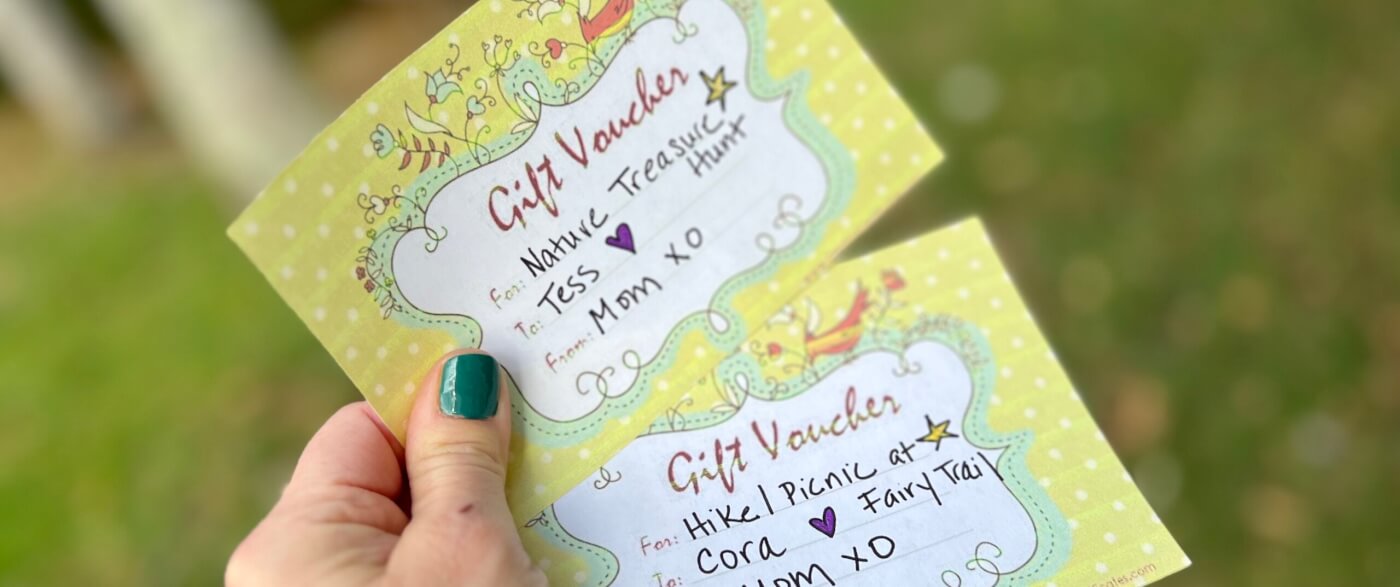 Gift Voucher
For: Nature Treasure Hunt
To: Tess
From: Mom XO
Gift Voucher
For: Hike/Picnic at Fairy Trail
To: Cora
Mom XO